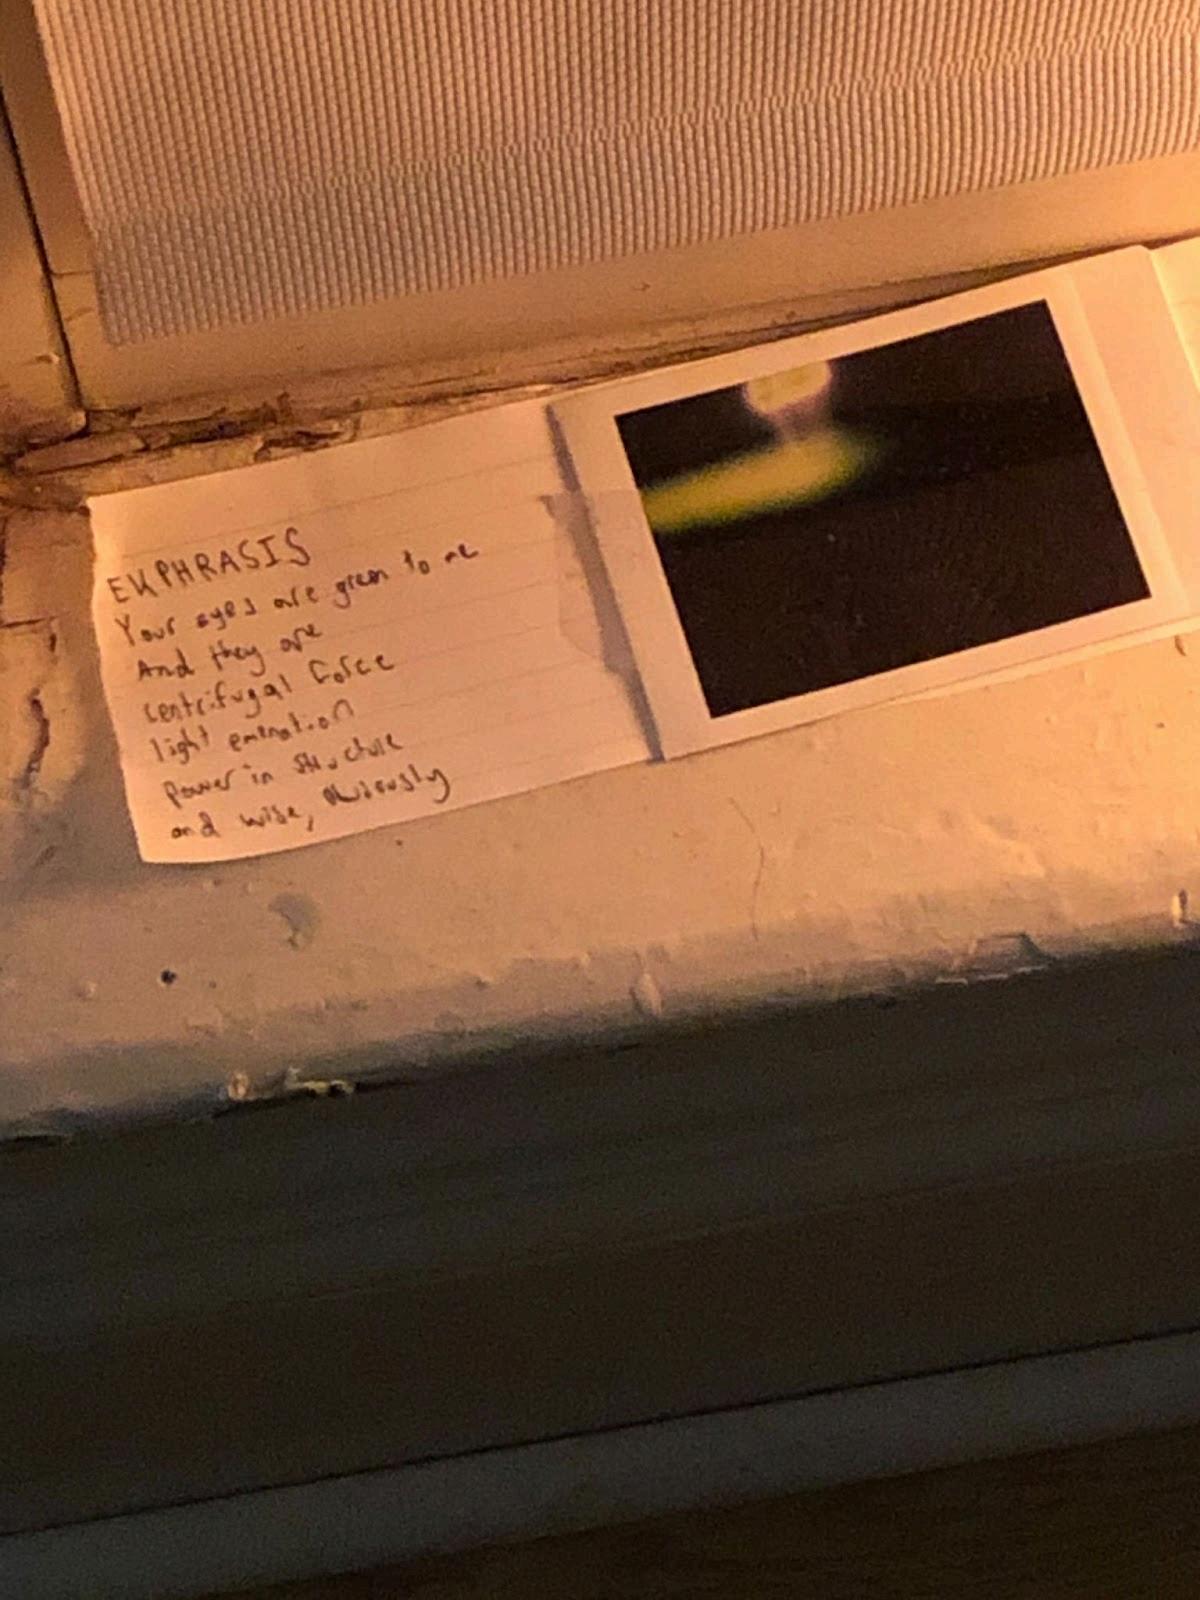 EKPHRASIS
Your eyes are green to me
And they are
centrifugal force
light emanation
power in structure
and wise, obviously